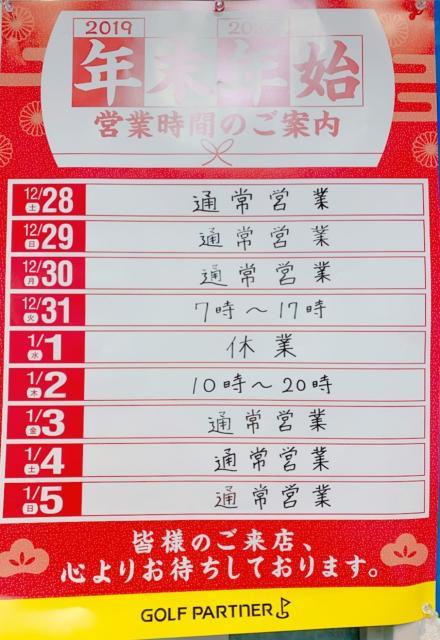 2019
年末年始
営業時間のご案内
12/28 土 通常営業
12/29 日 通常営業
12/30 月 通常営業
12/31 火 7時～17時
1/1 水 休業
1/2 木 10時～20時
1/3 金 通常営業
1/4 土 通常営業
1/5 日 通常営業
皆様のご来店、
心よりお待ちしております。
GOLF PARTNER